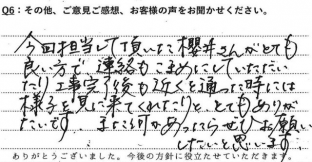 Q6：その他、ご意見ご感想、お客様の声をお聞かせください。
今回担当して頂いた櫻井さんがとても
良い方で連絡もこまめにしていただい
たり工事完了後も近くを通った時には
様子を見に来てくれたりと、とてもありが
たいです。また何かあったらぜひお願い
したいと思います
ありがとうございました。今後の方針に役立たせていただきます